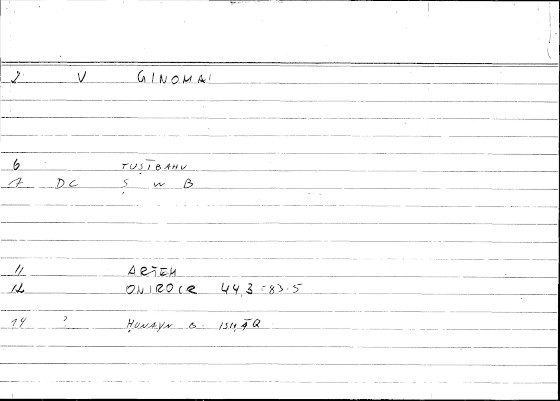 2 V GINOMAI
6 TUṢĪBAHU
7 DC Ṣ W B
11 ARTEM
12 ONIROCR 44,3-83.5
14 ? ḤUNAYN B. ISḤĀQ